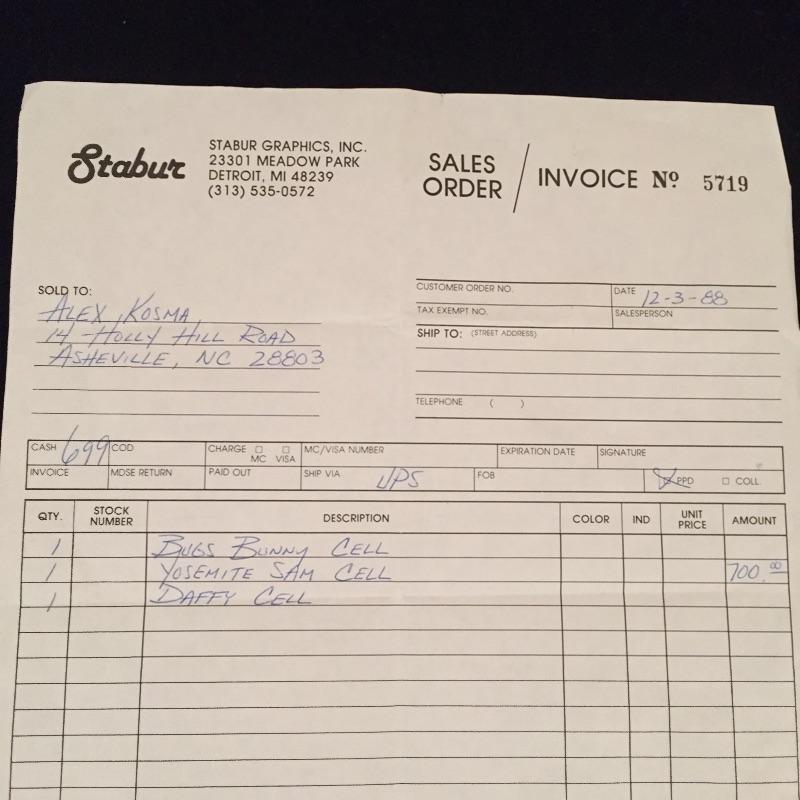 Stabur
STABUR GRAPHICS, INC.
23301 MEADOW PARK
DETROIT, MI 48239
(313) 535-0572
SALES ORDER / INVOICE Nº 5719
SOLD TO:
ALEX KOSMA
14 HOLLY HILL ROAD
ASHEVILLE, NC 28803
CUSTOMER ORDER NO. DATE 12-3-88
TAX EXEMPT NO. SALESPERSON
SHIP TO: (STREET ADDRESS)
TELEPHONE ( )
CASH 699 COD CHARGE MC VISA MC/VISA NUMBER EXPIRATION DATE SIGNATURE
INVOICE MDSE RETURN PAID OUT SHIP VIA UPS FOB PPD COLL.
QTY. STOCK NUMBER DESCRIPTION COLOR IND UNIT PRICE AMOUNT
1 BUGS BUNNY CELL
1 YOSEMITE SAM CELL 700.00
1 DAFFY CELL